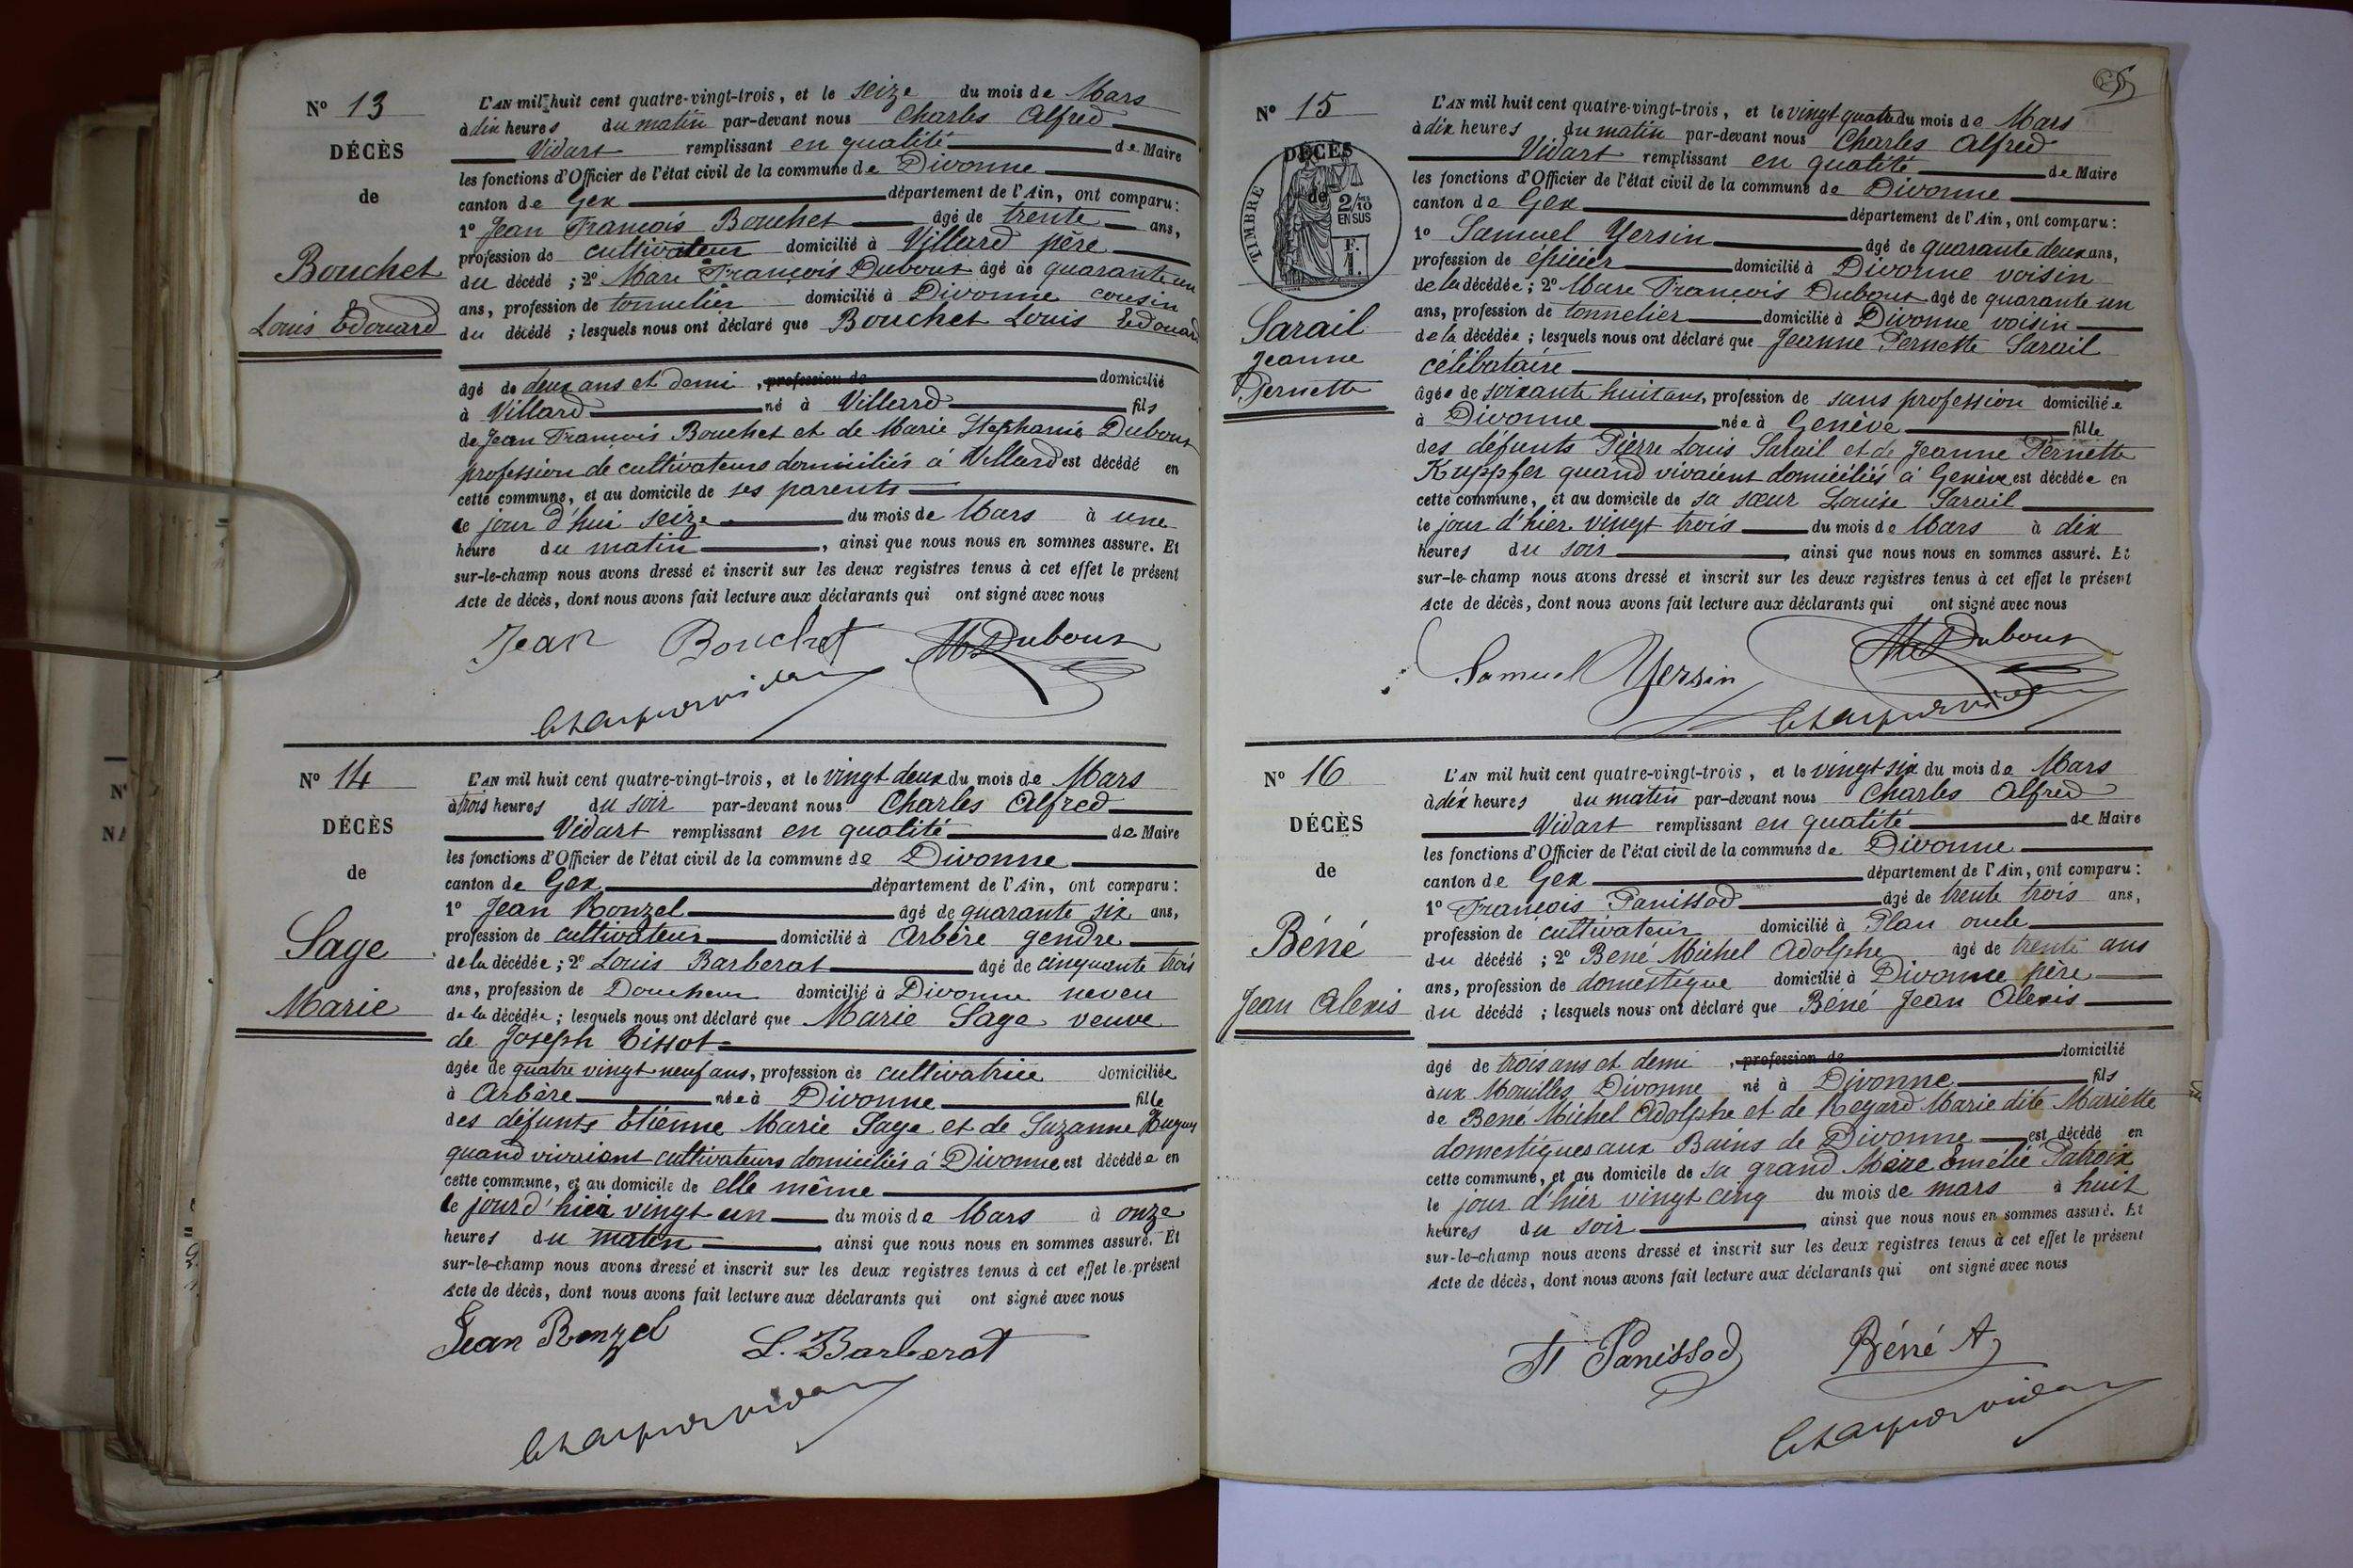 N° 13
DÉCÈS
de
Bouchet
Louis Edouard
L'AN mil huit cent quatre-vingt-trois, et le seize du mois de Mars
à dix heures du matin par-devant nous Charles Alfred
Vidart remplissant en qualité de Maire
les fonctions d'Officier de l'état civil de la commune de Divonne
canton de Gex département de l'Ain, ont comparu:
1° Jean François Bouchet âgé de trente ans,
profession de cultivateur domicilié à Villard père
du décédé ; 2° Marc François Dubout âgé de quarante un
ans, profession de tonnelier domicilié à Divonne cousin
du décédé ; lesquels nous ont déclaré que Bouchet Louis Edouard
âgé de deux ans et demi , profession de domicilié
à Villard né à Villard fils
de Jean François Bouchet et de Marie Stephanie Dubout
profession de cultivateurs domiciliés à Villard est décédé en
cette commune, et au domicile de ses parents
le jour d'hui seize du mois de Mars à une
heure du matin , ainsi que nous nous en sommes assuré. Et
sur-le-champ nous avons dressé et inscrit sur les deux registres tenus à cet effet le présent
Acte de décès, dont nous avons fait lecture aux déclarants qui ont signé avec nous
Jean Bouchet MF Dubout
N° 14
DÉCÈS
de
Sage
Marie
L'AN mil huit cent quatre-vingt-trois, et le vingt deux du mois de Mars
à trois heures du soir par-devant nous Charles Alfred
Vidart remplissant en qualité de Maire
les fonctions d'Officier de l'état civil de la commune de Divonne
canton de Gex département de l'Ain, ont comparu:
1° Jean Ronzel âgé de quarante six ans,
profession de cultivateur domicilié à Arbère gendre
de la décédée ; 2° Louis Barberat âgé de cinquante trois
ans, profession de Doucheur domicilié à Divonne neveu
de la décédée ; lesquels nous ont déclaré que Marie Sage veuve
de Joseph Tissot
âgée de quatre vingt neuf ans, profession de cultivatrice domiciliée
à Arbère née à Divonne fille
des défunts Etienne Marie Sage et de Suzanne
quand vivaient cultivateurs domiciliés à Divonne est décédée en
cette commune, et au domicile de elle même
le jour d'hier vingt un du mois de Mars à onze
heures du matin , ainsi que nous nous en sommes assuré. Et
sur-le-champ nous avons dressé et inscrit sur les deux registres tenus à cet effet le présent
Acte de décès, dont nous avons fait lecture aux déclarants qui ont signé avec nous
Jean Ronzel L. Barberat
N° 15
DÉCÈS
de
TIMBRE
2/10
EN SUS
F.
1.
Sarail
Jeanne
Pernette
L'AN mil huit cent quatre-vingt-trois, et le vingt quatre du mois de Mars
à dix heures du matin par-devant nous Charles Alfred
Vidart remplissant en qualité de Maire
les fonctions d'Officier de l'état civil de la commune de Divonne
canton de Gex département de l'Ain, ont comparu:
1° Samuel Yersin âgé de quarante deux ans,
profession de épicier domicilié à Divonne voisin
de la décédée ; 2° Marc François Dubout âgé de quarante un
ans, profession de tonnelier domicilié à Divonne voisin
de la décédée ; lesquels nous ont déclaré que Jeanne Pernette Sarail
célibataire
âgée de soixante huit ans, profession de sans profession domiciliée
à Divonne née à Genève fille
des défunts Pierre Louis Sarail et de Jeanne Pernette
Kuppfer quand vivaient domiciliés à Genève est décédée en
cette commune, et au domicile de sa sœur Louise Sarail
le jour d'hier vingt trois du mois de Mars à dix
heures du soir , ainsi que nous nous en sommes assuré. Et
sur-le-champ nous avons dressé et inscrit sur les deux registres tenus à cet effet le présent
Acte de décès, dont nous avons fait lecture aux déclarants qui ont signé avec nous
Samuel Yersin MF Dubout
N° 16
DÉCÈS
de
Béné
Jean Alexis
L'AN mil huit cent quatre-vingt-trois, et le vingt six du mois de Mars
à dix heures du matin par-devant nous Charles Alfred
Vidart remplissant en qualité de Maire
les fonctions d'Officier de l'état civil de la commune de Divonne
canton de Gex département de l'Ain, ont comparu:
1° François Panissod âgé de trente trois ans,
profession de cultivateur domicilié à Plan oncle
du décédé ; 2° Bené Michel Adolphe âgé de trente ans
ans, profession de domestique domicilié à Divonne père
du décédé ; lesquels nous ont déclaré que Béné Jean Alexis
âgé de trois ans et demi , profession de domicilié
aux Mouilles Divonne né à Divonne fils
de Bené Michel Adolphe et de Regard Marie dite Mariette
domestiques aux Bains de Divonne est décédé en
cette commune, et au domicile de sa grand Mère Emélie Patroix
le jour d'hier vingt cinq du mois de mars à huit
heures du soir , ainsi que nous nous en sommes assuré. Et
sur-le-champ nous avons dressé et inscrit sur les deux registres tenus à cet effet le présent
Acte de décès, dont nous avons fait lecture aux déclarants qui ont signé avec nous
Panissod Béné A